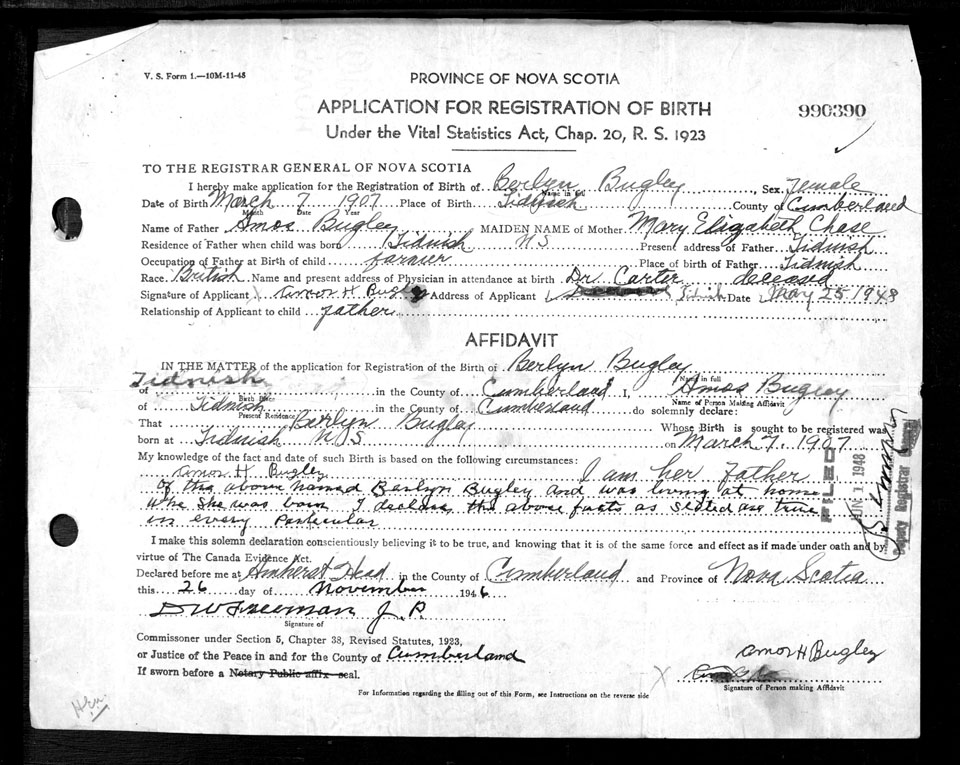 V. S. Form 1.—10M-11-45
PROVINCE OF NOVA SCOTIA
APPLICATION FOR REGISTRATION OF BIRTH
990390
Under the Vital Statistics Act, Chap. 20, R. S. 1923
TO THE REGISTRAR GENERAL OF NOVA SCOTIA
I hereby make application for the Registration of Birth of Berlyn Bugley, Sex Female
Name in full
Date of Birth March 7 1907 Place of Birth Tidnish County of Cumberland
Month Date Year
Name of Father Amos Bugley MAIDEN NAME of Mother Mary Elizabeth Chase
Residence of Father when child was born Tidnish NS Present address of Father Tidnish
Occupation of Father at Birth of child farmer Place of birth of Father Tidnish
Race British Name and present address of Physician in attendance at birth Dr Carter deceased
Signature of Applicant Amos H Bugley Address of Applicant Tidnish Date May 25 1948
Relationship of Applicant to child father
AFFIDAVIT
IN THE MATTER of the application for Registration of the Birth of Berlyn Bugley
Name in full
Tidnish
of in the County of Cumberland I, Amos Bugley
Birth Place Name of Person Making Affidavit
of Tidnish in the County of Cumberland do solemnly declare:
Present Residence
That Berlyn Bugley Whose Birth is sought to be registered was
born at Tidnish N S on March 7. 1907
My knowledge of the fact and date of such Birth is based on the following circumstances:
Amos H Bugley I am her father
of the above named Berlyn Bugley and was living at home
whe she was born I declare the above facts as stated are true
in every particular
FILED
JUN 1 1948
Deputy Registrar General
I make this solemn declaration conscientiously believing it to be true, and knowing that it is of the same force and effect as if made under oath and by
virtue of The Canada Evidence Act.
Declared before me at Amherst Head in the County of Cumberland and Province of Nova Scotia
this 26 day of November 1946
D W Freeman J. P.
Signature of
Commissoner under Section 5, Chapter 38, Revised Statutes, 1923,
or Justice of the Peace in and for the County of Cumberland
If sworn before a Notary Public affix seal.
Amos H Bugley
X
Signature of Person making Affidavit
For Information regarding the filling out of this Form, see Instructions on the reverse side